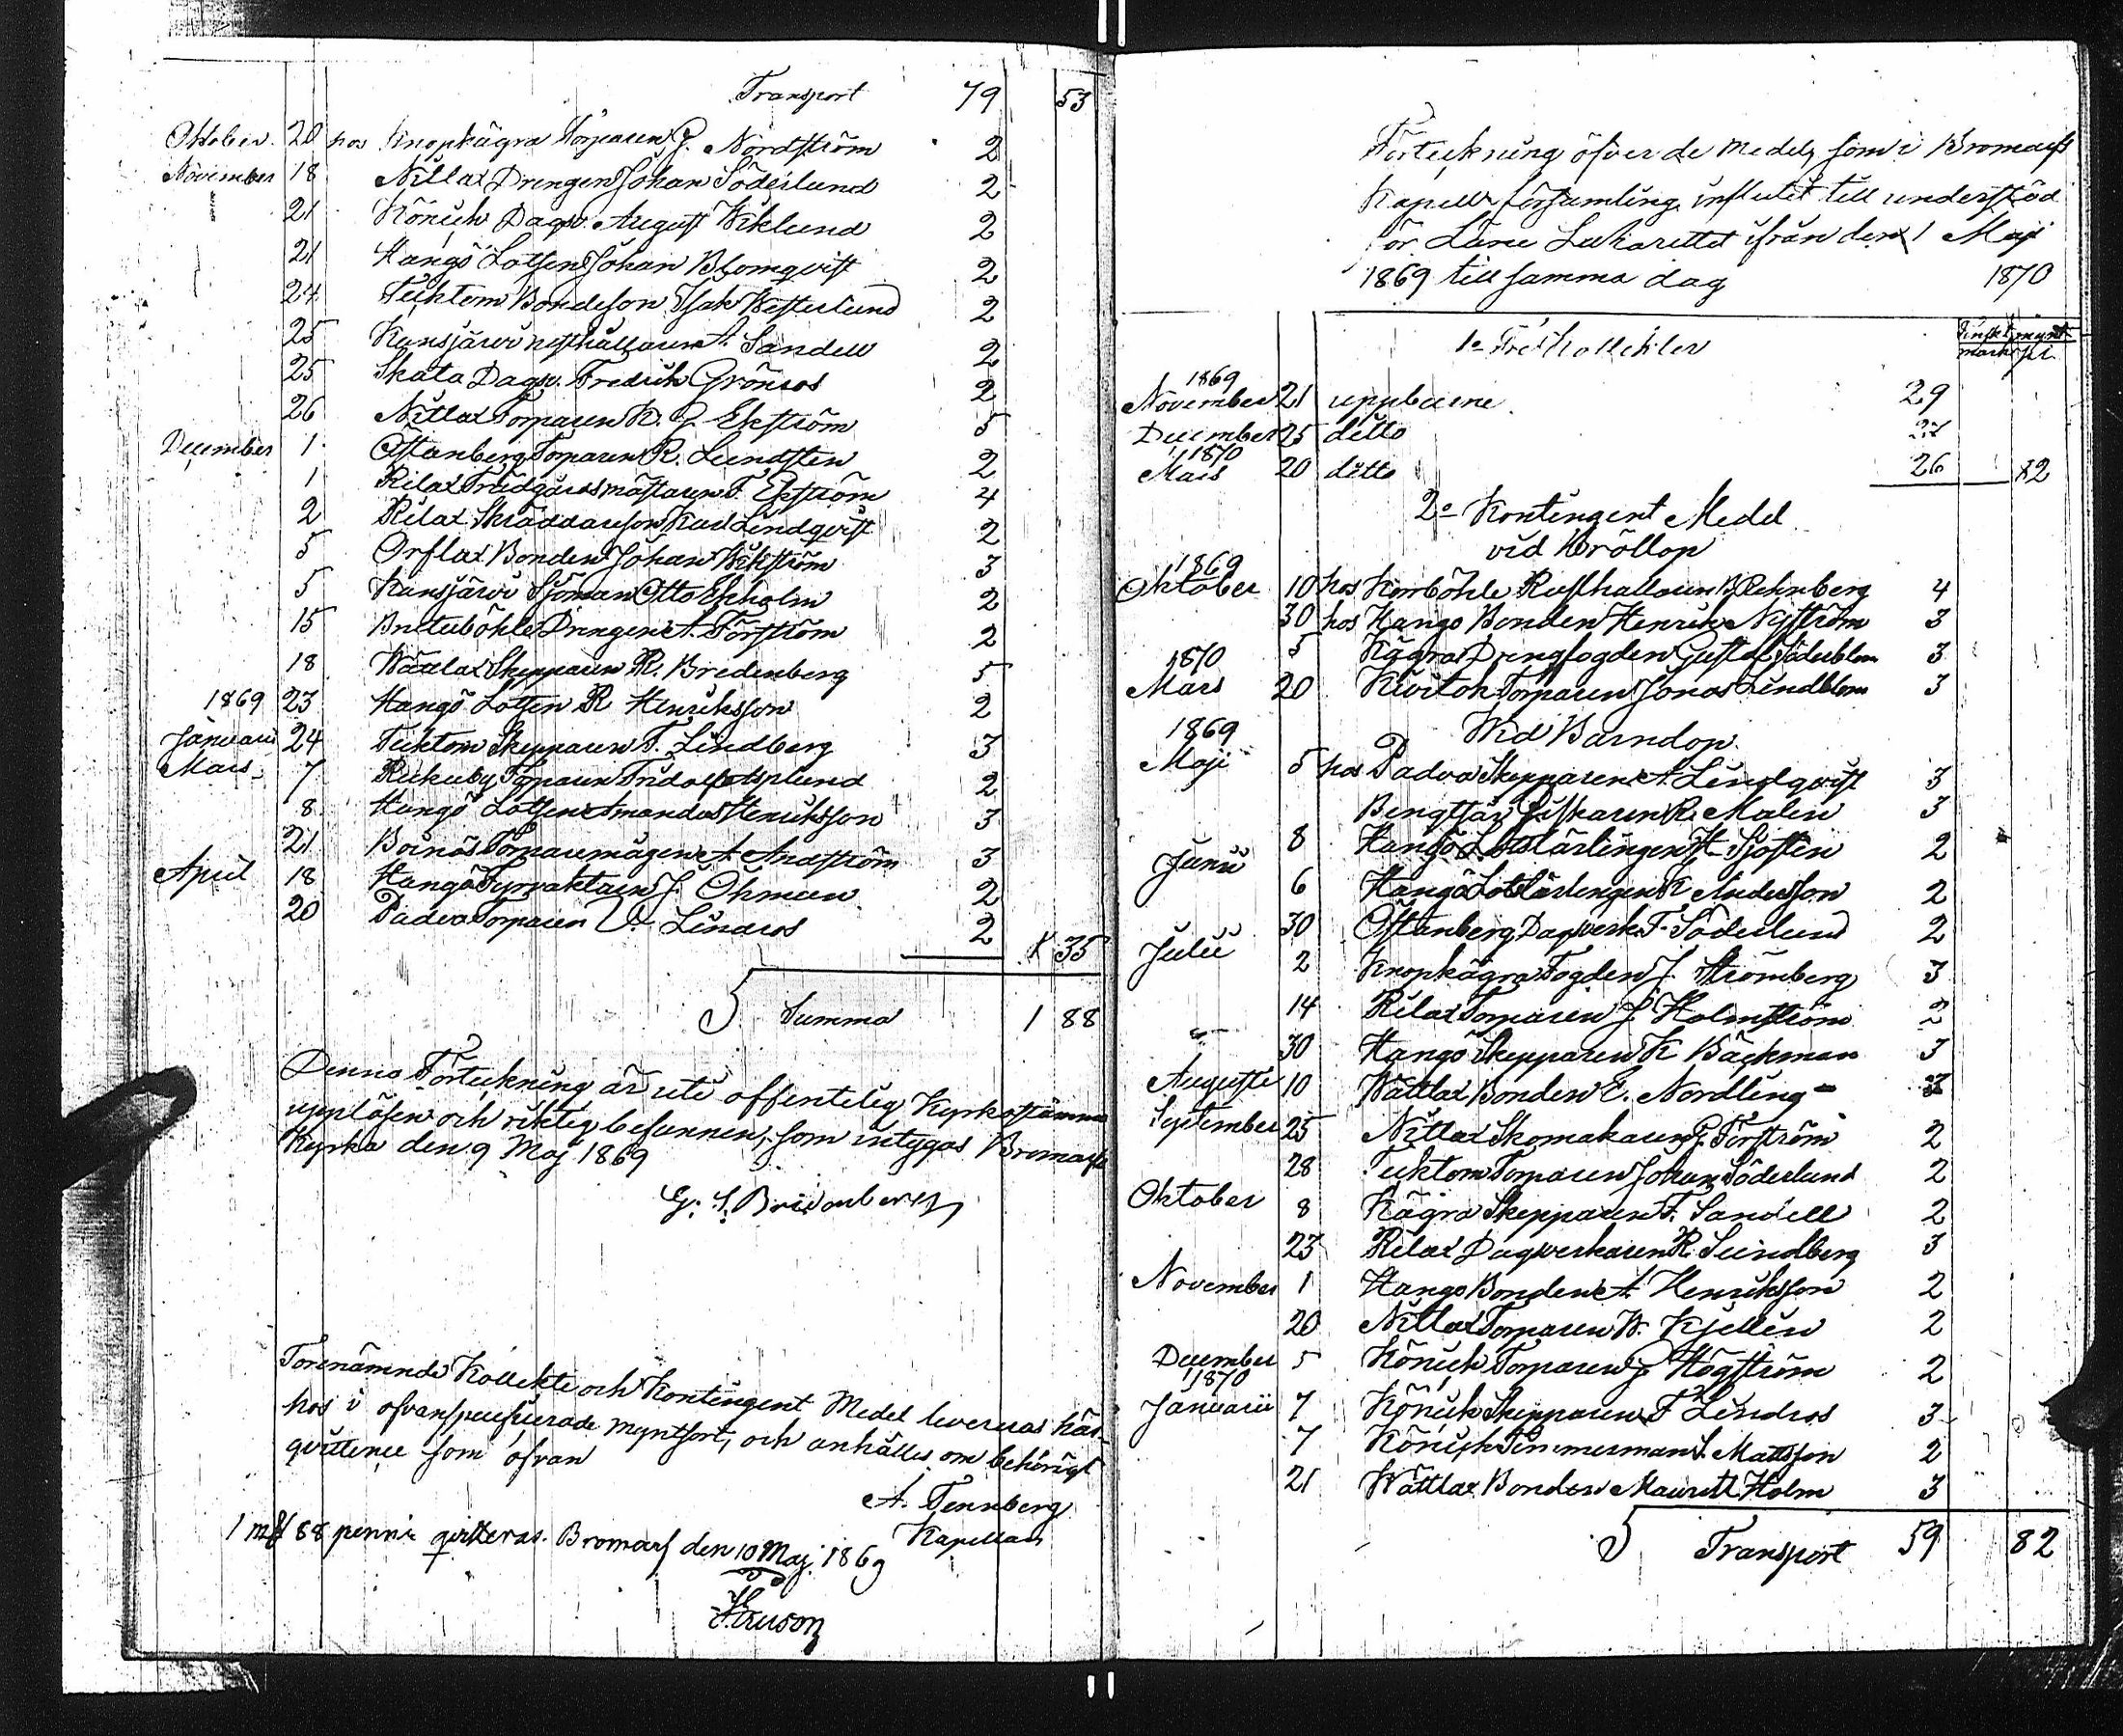 Transport 79 53
Oktober. 20 hos Knopkägra Torparen G. Nordström 2
November 18 Nitlax Drengen Johan Söderlund 2
21 Könick Dagsv. August Wiklund 2
21 Hangö Lotsen Johan Blomqvist 2
24 Tecktom Bondeson Isak Westerlund 2
25 Kansjärvi rusthållaren A. Sandell 2
25 Skata Dagsv. Fredrik Grönros 2
26 Nitlax Torparen K. G. Ekström 5
December 1 Östanberg Torparen R. Lundsten 2
1 Rilax Trädgårdsmästaren F. Ekström 4
2 Rilax Skräddareson Karl Lindqvist 2
5 Orslax Bonden Johan Wikström 3
5 Kansjärvi Sjöman Otto Ekholm 2
15 Bruteböhle Drengen A. Forström 2
18 Wättlax Skepparen R. Bredenberg 5
1869 23 Hangö Lotsen R Henriksson 2
Januari 24 Tecktom Skepparen F. Lindberg 3
Mars 7 Rickuby Torparen Fridolf Asplund 2
8 Hangö Lotsen Amandus Henriksson 3
21 Boinäs Torparemågen A. Andström 3
April 18 Hangö Fyrvaktaren J. Öhman 2
20 Padva Torparen V. Lindros 2
1 35
S Summa 1 88
Denna Förteckning är uti offentelig Kyrkostämma
uppläsen och riktig befunnen, som intygas Bromarf
Kyrka den 9 Maj 1869
G. S. Bridenberg
Forenämnde Kollekte och Kontingent Medel levereras här-
hos i ofvanspecifierade myntsort, och anhålles om behörigt
qvittence som ofvan
A. Tennberg
Kapellan
1 mk 88 penni qvitteras. Bromarf den 10 Maj 1869
Förteckning öfver de Medel, som i Bromarfs
Kapells församling influtit till understöd
för Läne Lazarettet ifrån den 1 Maj
1869 till samma dag 1870
1o Fri Kollekter
Finskt mynt
mark pi.
1869
November 21 uppburne 29
December 25 ditto 27
1870
Mars 20 ditto 26 82
2o Kontingent Medel
vid Bröllop
1869
Oktober 10 hos Korböhle Rusthållaren B. Rehnberg 4
30 hos Hangö Bonden Henrik Nyström 3
1870 5 Kägra Drengfogden Gustaf Söderblom 3
Mars 20 Kivitok Torparen Jonas Lindblom 3
1869 Wid Barndop
Maji 5 hos Padva Skepparen A. Lindqvist 3
Bengtsår Fiskaren R. Malin 3
8 Hangö Lotslärlingen H. Sjösten 2
Junii 6 Hangö Lotslärlingen K Andersson 2
30 Östanberg Dagsverk. F. Söderlund 2
Julii 2 Knopkägra Fogden J. Strömberg 3
14 Rilax Torparen J. Holmström 2
30 Hangö Skepparen K Bäckman 3
Augusti 10 Wättlax Bonden E. Nordling 3
September 25 Nitlax Skomakaren G. Forström 2
28 Tecktom Torparen Johan Söderlund 2
Oktober 8 Kägra Skepparen F. Sandell 2
23 Rilax Dagsverkaren R. Lundberg 3
November 1 Hangö Bonden A. Henriksson 2
20 Nitlax Torparen W. Kjellén 2
December 5 Könick Torparen J. Högström 2
1870
Januarii 7 Könick Skepparen F Lindros 3
7 Könick Timmerman S. Mattsson 2
21 Wättlax Bonden Mauritz Holm 3
S Transport 59 82